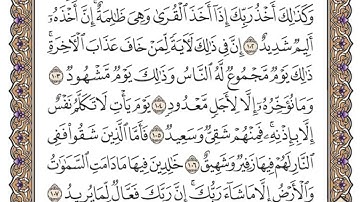 وَكَذَٰلِكَ أَخْذُ رَبِّكَ إِذَآ أَخَذَ ٱلْقُرَىٰ وَهِىَ ظَٰلِمَةٌ ۚ إِنَّ أَخْذَهُۥٓ
أَلِيمٌ شَدِيدٌ ١٠٢ إِنَّ فِى ذَٰلِكَ لَءَايَةً لِّمَنْ خَافَ عَذَابَ ٱلْءَاخِرَةِ ۚ
ذَٰلِكَ يَوْمٌ مَّجْمُوعٌ لَّهُ ٱلنَّاسُ وَذَٰلِكَ يَوْمٌ مَّشْهُودٌ ١٠٣
وَمَا نُؤَخِّرُهُۥٓ إِلَّا لِأَجَلٍ مَّعْدُودٍ ١٠٤ يَوْمَ يَأْتِ لَا تَكَلَّمُ نَفْسٌ
إِلَّا بِإِذْنِهِۦ ۚ فَمِنْهُمْ شَقِىٌّ وَسَعِيدٌ ١٠٥ فَأَمَّا ٱلَّذِينَ شَقُوا۟ فَفِى
ٱلنَّارِ لَهُمْ فِيهَا زَفِيرٌ وَشَهِيقٌ ١٠٦ خَٰلِدِينَ فِيهَا مَا دَامَتِ ٱلسَّمَٰوَٰتُ
وَٱلْأَرْضُ إِلَّا مَا شَآءَ رَبُّكَ ۚ إِنَّ رَبَّكَ فَعَّالٌ لِّمَا يُرِيدُ ١٠٧